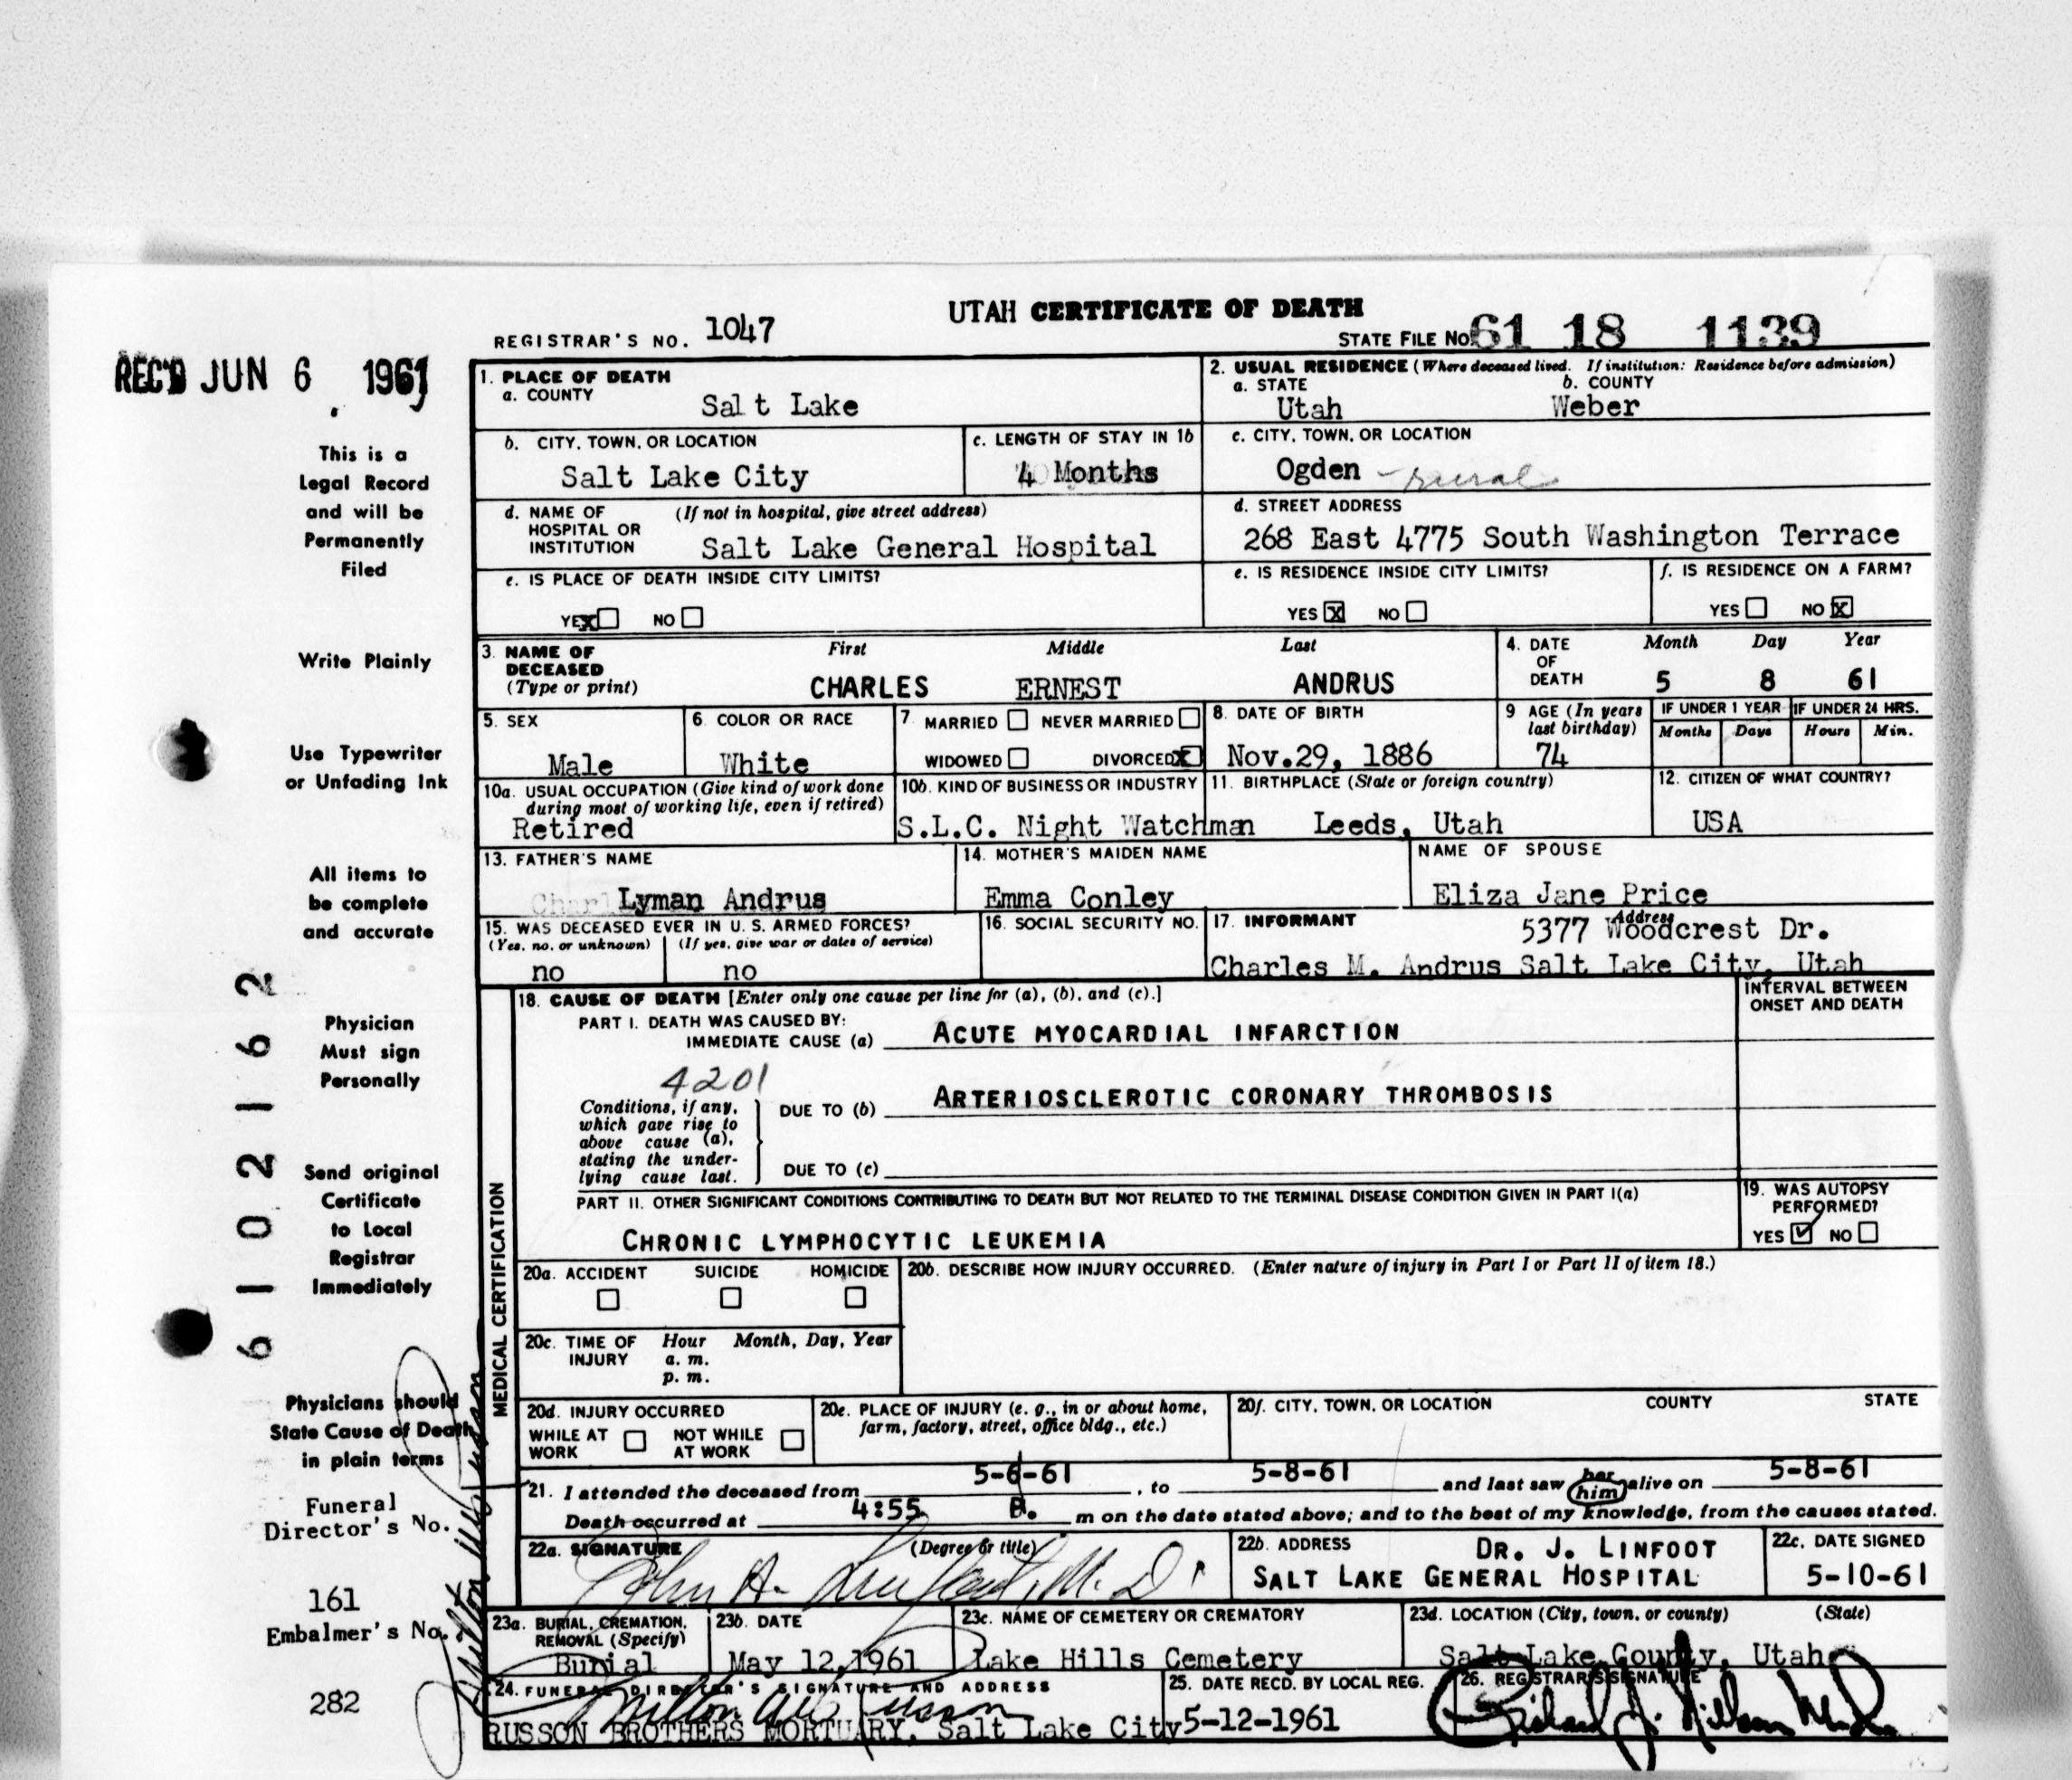 UTAH CERTIFICATE OF DEATH
REGISTRAR'S NO. 1047
STATE FILE NO. 61 18 1139
REC'D JUN 6 1961
This is a
Legal Record
and will be
Permanently
Filed
Write Plainly
Use Typewriter
or Unfading Ink
All items to
be complete
and accurate
Physician
Must sign
Personally
Send original
Certificate
to Local
Registrar
Immediately
Physicians should
State Cause of Death
in plain terms
Funeral
Director's No.
161
Embalmer's No.
282
6102162
1. PLACE OF DEATH
a. COUNTY
Salt Lake
2. USUAL RESIDENCE (Where deceased lived. If institution: Residence before admission)
a. STATE b. COUNTY
Utah Weber
b. CITY, TOWN, OR LOCATION
Salt Lake City
c. LENGTH OF STAY IN 1b
4 Months
c. CITY, TOWN, OR LOCATION
Ogden - rural
d. NAME OF (If not in hospital, give street address)
HOSPITAL OR
INSTITUTION Salt Lake General Hospital
d. STREET ADDRESS
268 East 4775 South Washington Terrace
e. IS PLACE OF DEATH INSIDE CITY LIMITS?
YES X NO
e. IS RESIDENCE INSIDE CITY LIMITS?
YES X NO
f. IS RESIDENCE ON A FARM?
YES NO X
3. NAME OF First Middle Last
DECEASED
(Type or print) CHARLES ERNEST ANDRUS
4. DATE Month Day Year
OF
DEATH 5 8 61
5. SEX
Male
6. COLOR OR RACE
White
7. MARRIED NEVER MARRIED
WIDOWED DIVORCED X
8. DATE OF BIRTH
Nov.29, 1886
9 AGE (In years
last birthday)
74
IF UNDER 1 YEAR IF UNDER 24 HRS.
Months Days Hours Min.
10a. USUAL OCCUPATION (Give kind of work done
during most of working life, even if retired)
Retired
10b. KIND OF BUSINESS OR INDUSTRY
S.L.C. Night Watchman
11. BIRTHPLACE (State or foreign country)
Leeds, Utah
12. CITIZEN OF WHAT COUNTRY?
USA
13. FATHER'S NAME
Lyman Andrus
14. MOTHER'S MAIDEN NAME
Emma Conley
NAME OF SPOUSE
Eliza Jane Price
15. WAS DECEASED EVER IN U. S. ARMED FORCES?
(Yes, no, or unknown) (If yes, give war or dates of service)
no no
16. SOCIAL SECURITY NO.
17. INFORMANT Address
5377 Woodcrest Dr.
Charles M. Andrus Salt Lake City, Utah
MEDICAL CERTIFICATION
18. CAUSE OF DEATH [Enter only one cause per line for (a), (b), and (c).]
INTERVAL BETWEEN
ONSET AND DEATH
PART I. DEATH WAS CAUSED BY:
IMMEDIATE CAUSE (a) ACUTE MYOCARDIAL INFARCTION
4201
Conditions, if any,
which gave rise to
above cause (a),
stating the under-
lying cause last.
DUE TO (b) ARTERIOSCLEROTIC CORONARY THROMBOSIS
DUE TO (c)
PART II. OTHER SIGNIFICANT CONDITIONS CONTRIBUTING TO DEATH BUT NOT RELATED TO THE TERMINAL DISEASE CONDITION GIVEN IN PART I(a)
CHRONIC LYMPHOCYTIC LEUKEMIA
19. WAS AUTOPSY
PERFORMED?
YES ✓ NO
20a. ACCIDENT SUICIDE HOMICIDE
20b. DESCRIBE HOW INJURY OCCURRED. (Enter nature of injury in Part I or Part II of item 18.)
20c. TIME OF Hour Month, Day, Year
INJURY a. m.
p. m.
20d. INJURY OCCURRED
WHILE AT NOT WHILE
WORK AT WORK
20e. PLACE OF INJURY (e. g., in or about home,
farm, factory, street, office bldg., etc.)
20f. CITY, TOWN, OR LOCATION COUNTY STATE
21. I attended the deceased from 5-6-61, to 5-8-61 and last saw her him alive on 5-8-61
Death occurred at 4:55 m on the date stated above; and to the best of my knowledge, from the causes stated.
22a. SIGNATURE (Degree or title)
John H. Linfoot, M.D.
22b. ADDRESS DR. J. LINFOOT
SALT LAKE GENERAL HOSPITAL
22c. DATE SIGNED
5-10-61
23a. BURIAL, CREMATION,
REMOVAL (Specify)
Burial
23b. DATE
May 12, 1961
23c. NAME OF CEMETERY OR CREMATORY
Lake Hills Cemetery
23d. LOCATION (City, town, or county) (State)
Salt Lake County, Utah
24. FUNERAL DIRECTOR'S SIGNATURE AND ADDRESS
RUSSON BROTHERS MORTUARY, Salt Lake City
25. DATE RECD. BY LOCAL REG.
5-12-1961
26. REGISTRAR'S SIGNATURE